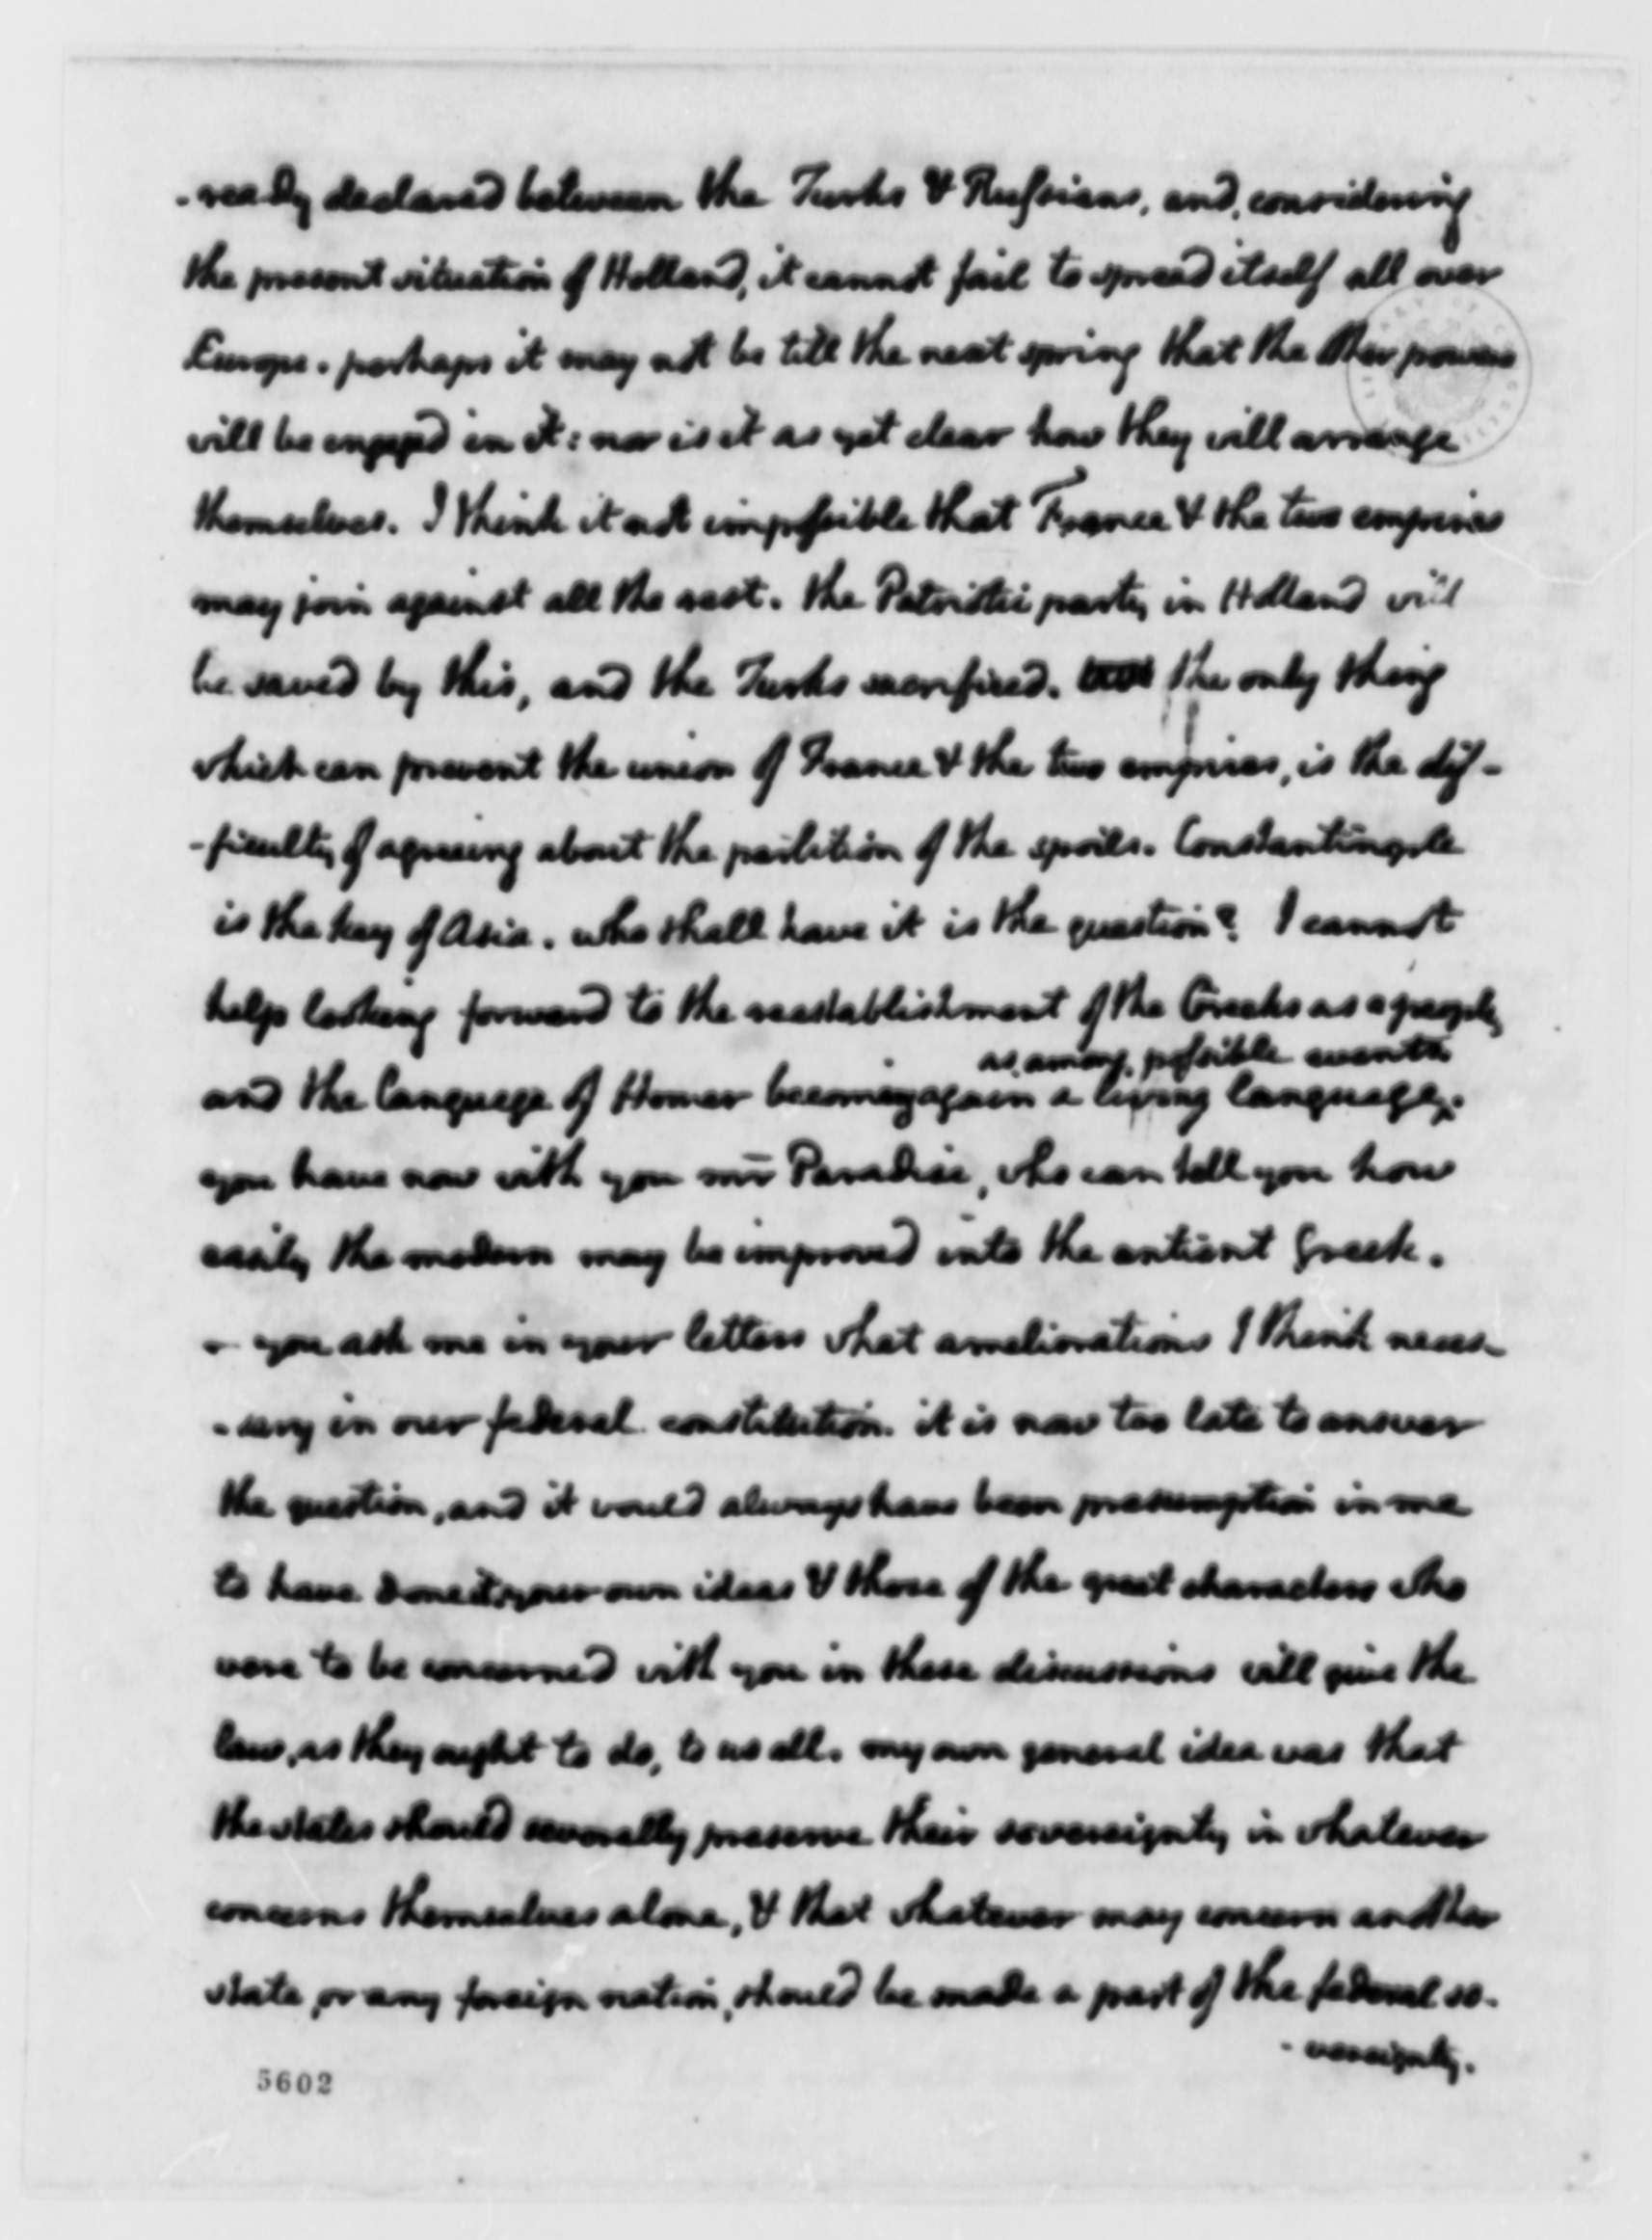 -ready declared between the Turks & Russians, and, considering
the present situation of Holland, it cannot fail to spread itself all over
Europe. perhaps it may not be till the next spring that the other powers
will be engaged in it: nor is it as yet clear how they will arrange
themselves. I think it not impossible that France & the two empires
may join against all the rest. the Patriotic party in Holland will
be saved by this, and the Turks sacrificed. the only thing
which can prevent the union of France & the two empires, is the dif-
-ficulty of agreeing about the partition of the spoils. Constantinople
is the key of Asia. who shall have it is the question? I cannot
help looking forward to the reestablishment of the Greeks as a people,
as among possible events.
and the language of Homer becoming again a living language,
you have now with you mr Paradise, who can tell you how
easily the modern may be improved into the antient Greek.
- you ask me in your letters what ameliorations I think neces-
-sary in our federal constitution. it is now too late to answer
the question, and it would always have been presumption in me
to have done it. your own ideas & those of the great characters who
were to be concerned with you in these discussions will give the
law, as they ought to do, to us all. my own general idea was that
the states should severally preserve their sovereignty in whatever
concerns themselves alone, & that whatever may concern another
state, or any foreign nation, should be made a part of the federal so-
-vereignty.
5602